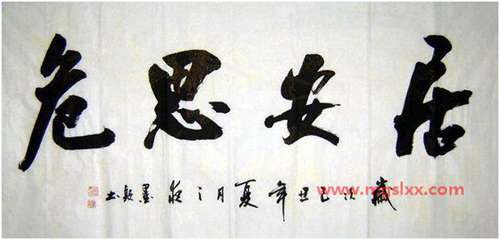 居安思危
歲次己丑年夏月之
www.mgslxx.com